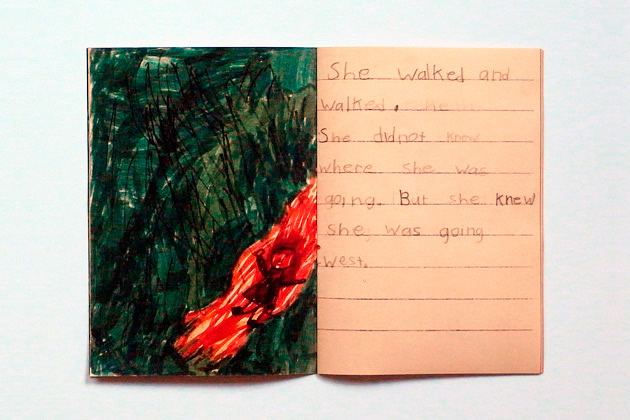 She walked and
walked.
She didnot knew
where she was
going. But she knew
she was going
west.